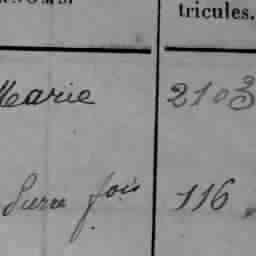 tricules.
Marie 2103
fois 116